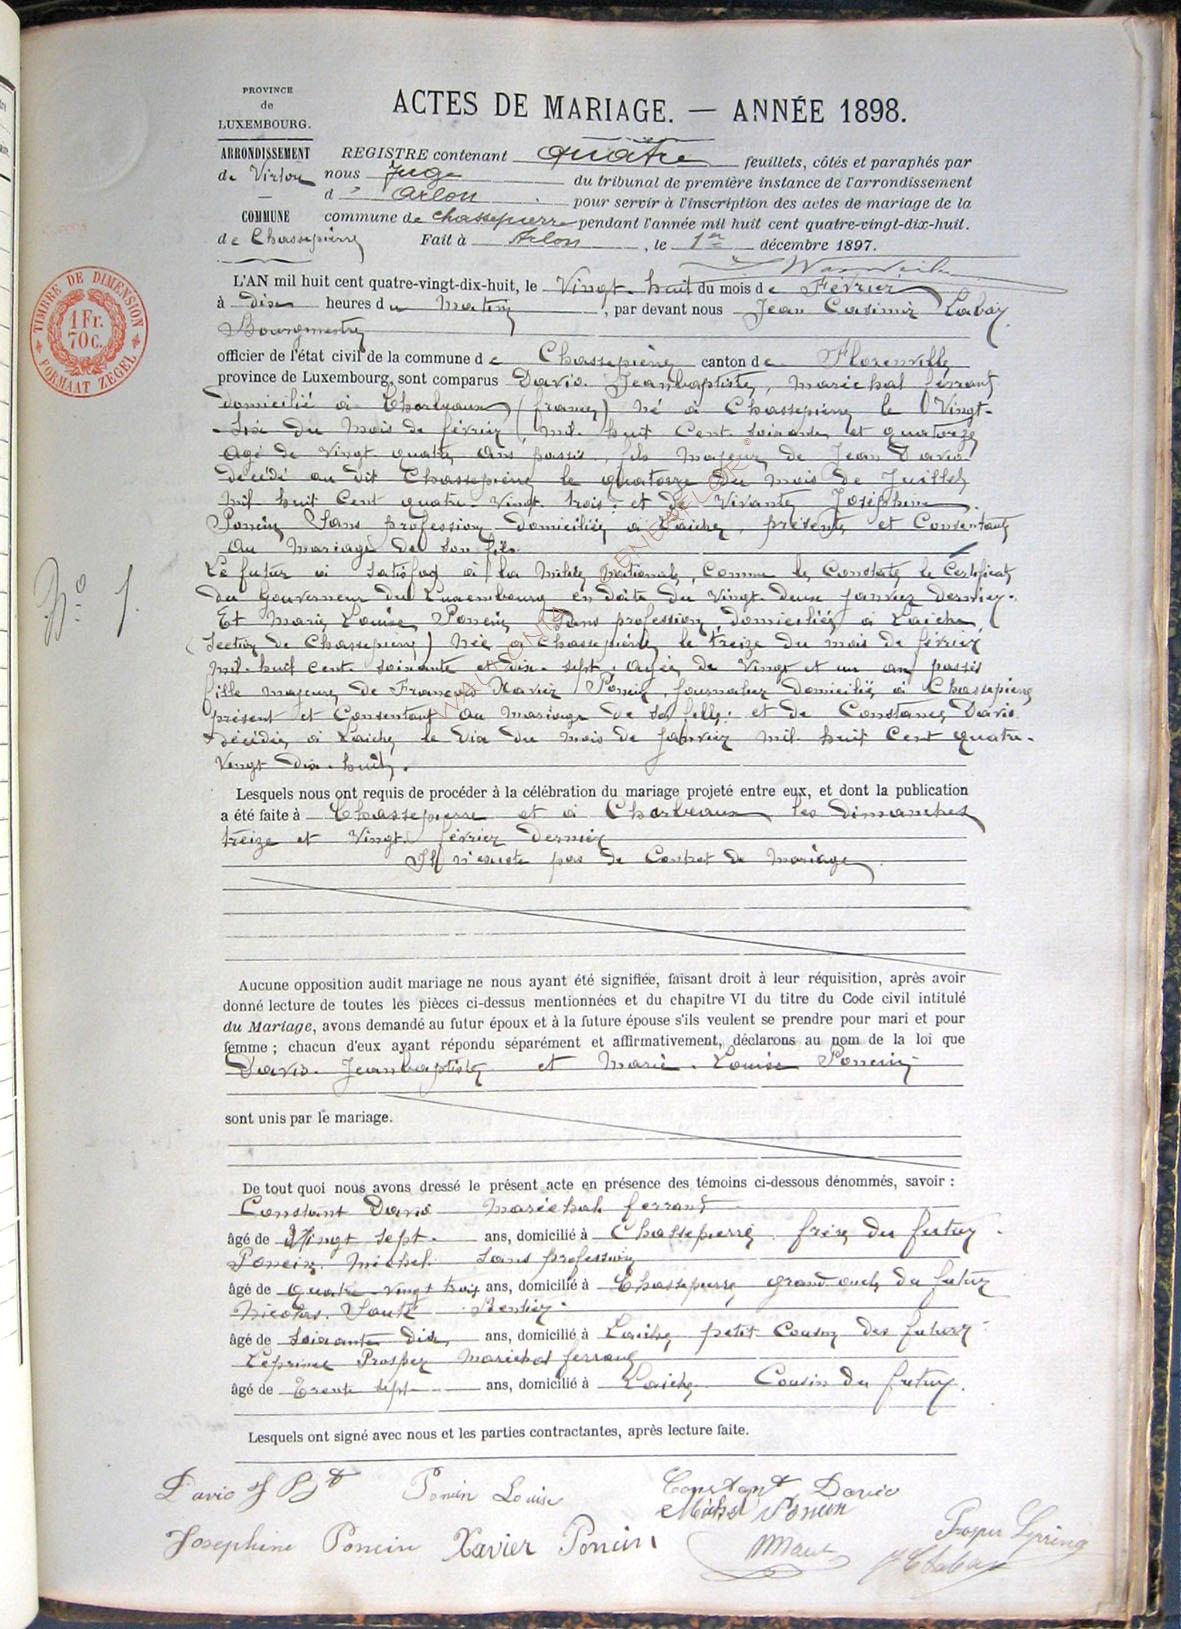 PROVINCE
de
LUXEMBOURG.
ARRONDISSEMENT
de Virton
COMMUNE
de Chassepierre
ACTES DE MARIAGE. — ANNÉE 1898.
REGISTRE contenant quatre feuillets, côtés et paraphés par
nous Juge du tribunal de première instance de l'arrondissement
d' Arlon pour servir à l'inscription des actes de mariage de la
commune de Chassepierre pendant l'année mil huit cent quatre-vingt-dix-huit.
Fait à Arlon, le 1er décembre 1897.
TIMBRE DE DIMENSION
1 Fr.
70 C.
FORMAAT ZEGEL
No 1.
L'AN mil huit cent quatre-vingt-dix-huit, le Vingt-huit du mois de Février
à dix heures du matin, par devant nous Jean Casimir Labay
Bourgmestre
officier de l'état civil de la commune de Chassepierre canton de Florenville
province de Luxembourg, sont comparus David Jeanbaptiste, maréchal ferrant
domicilié à Charbeaux (france) né à Chassepierre le Vingt-
six du mois de février, mil huit cent soixante et quatorze
agé de vingt quatre ans passés, fils majeur de Jean David
décédé au dit Chassepierre le quatorze du mois de Juillet
mil huit cent quatre-vingt trois; et de Vivante Joséphine
Poncin, sans profession domiciliée à Laiche, présente et Consentante
au mariage de son fils.
Le futur a satisfait à la milice nationale, comme le Constate le Certificat
du Gouverneur du Luxembourg en date du Vingt-deux Janvier dernier.
Et Marie Louise Poncin sans profession domiciliée à Laiche
(section de Chassepierre) née à Chassepierre le treize du mois de février
mil-huit cent soixante et dix-sept; agée de Vingt et un an passés
fille majeure de François Xavier Poncin journalier domicilié à Chassepierre
présent et Consentant au mariage de sa fille; et de Constance David
décédée à Laiche le dix du mois de Janvier mil huit cent quatre-
vingt dix-huit.
Lesquels nous ont requis de procéder à la célébration du mariage projeté entre eux, et dont la publication
a été faite à Chassepierre et à Charbeaux les dimanches
treize et Vingt février dernier
Il n'existe pas de Contrat de Mariage.
Aucune opposition audit mariage ne nous ayant été signifiée, faisant droit à leur réquisition, après avoir
donné lecture de toutes les pièces ci-dessus mentionnées et du chapitre VI du titre du Code civil intitulé
du Mariage, avons demandé au futur époux et à la future épouse s'ils veulent se prendre pour mari et pour
femme ; chacun d'eux ayant répondu séparément et affirmativement, déclarons au nom de la loi que
David Jeanbaptiste et Marie-Louise Poncin
sont unis par le mariage.
De tout quoi nous avons dressé le présent acte en présence des témoins ci-dessous dénommés, savoir :
Constant David Maréchal ferrant
âgé de Vingt sept ans, domicilié à Chassepierre frère du futur
Poncin Michel Sans profession
âgé de quatre-vingt trois ans, domicilié à Chassepierre grand oncle du futur
Nicolas Rentier
âgé de soixante dix ans, domicilié à Laiche petit Cousin des futurs
Leprime Prosper Maréchal ferrant
âgé de trente sept ans, domicilié à Laiche Cousin du futur.
Lesquels ont signé avec nous et les parties contractantes, après lecture faite.
David J Bt Poncin Louise Constant David
Michel Poncin
Josephine Poncin Xavier Poncin